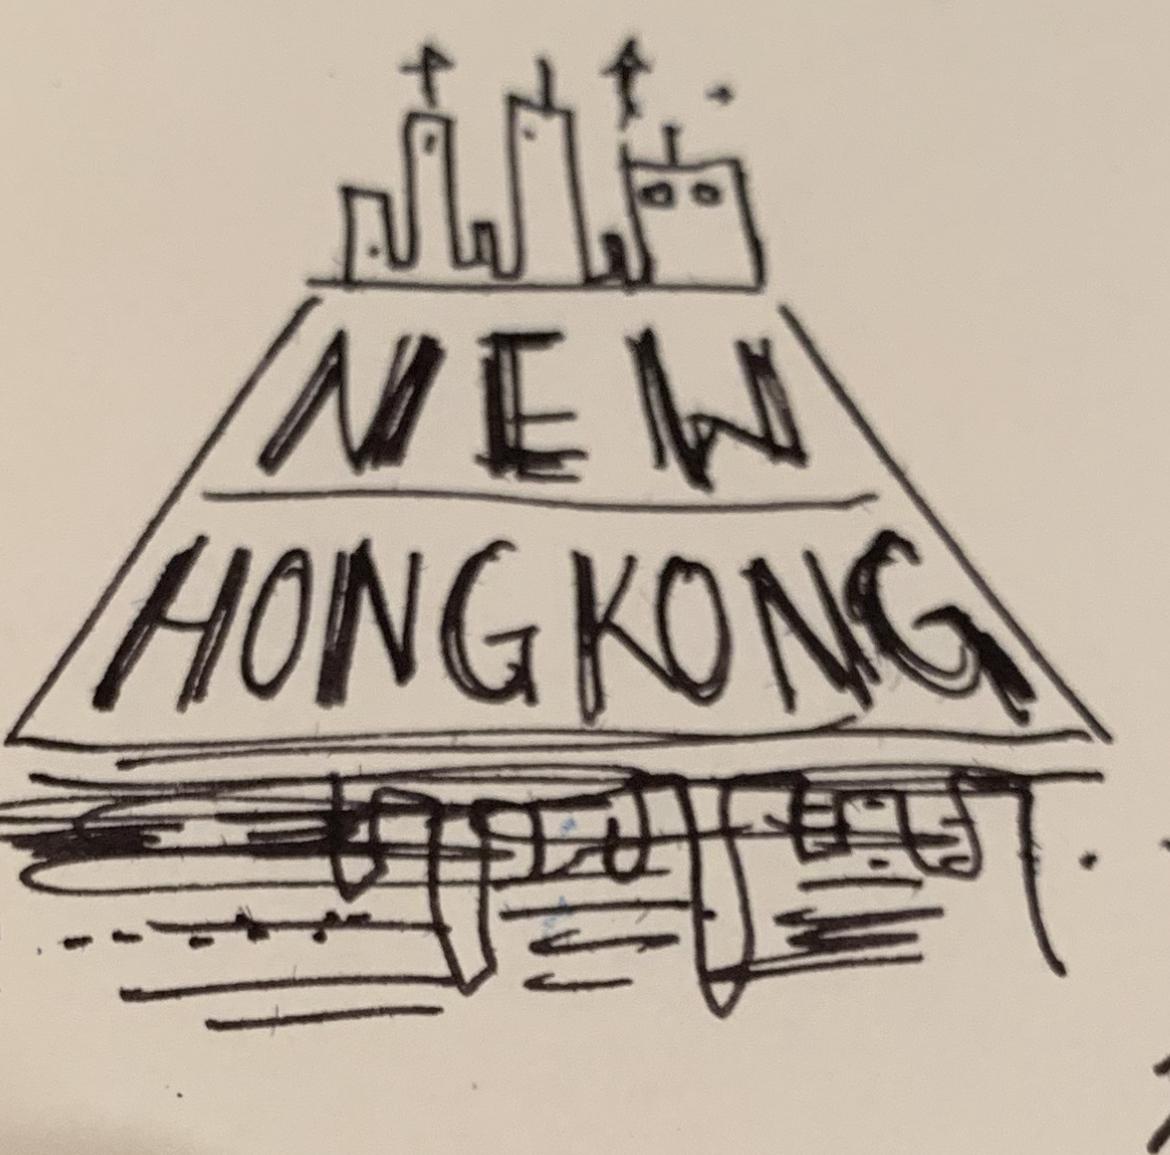 NEW
HONGKONG